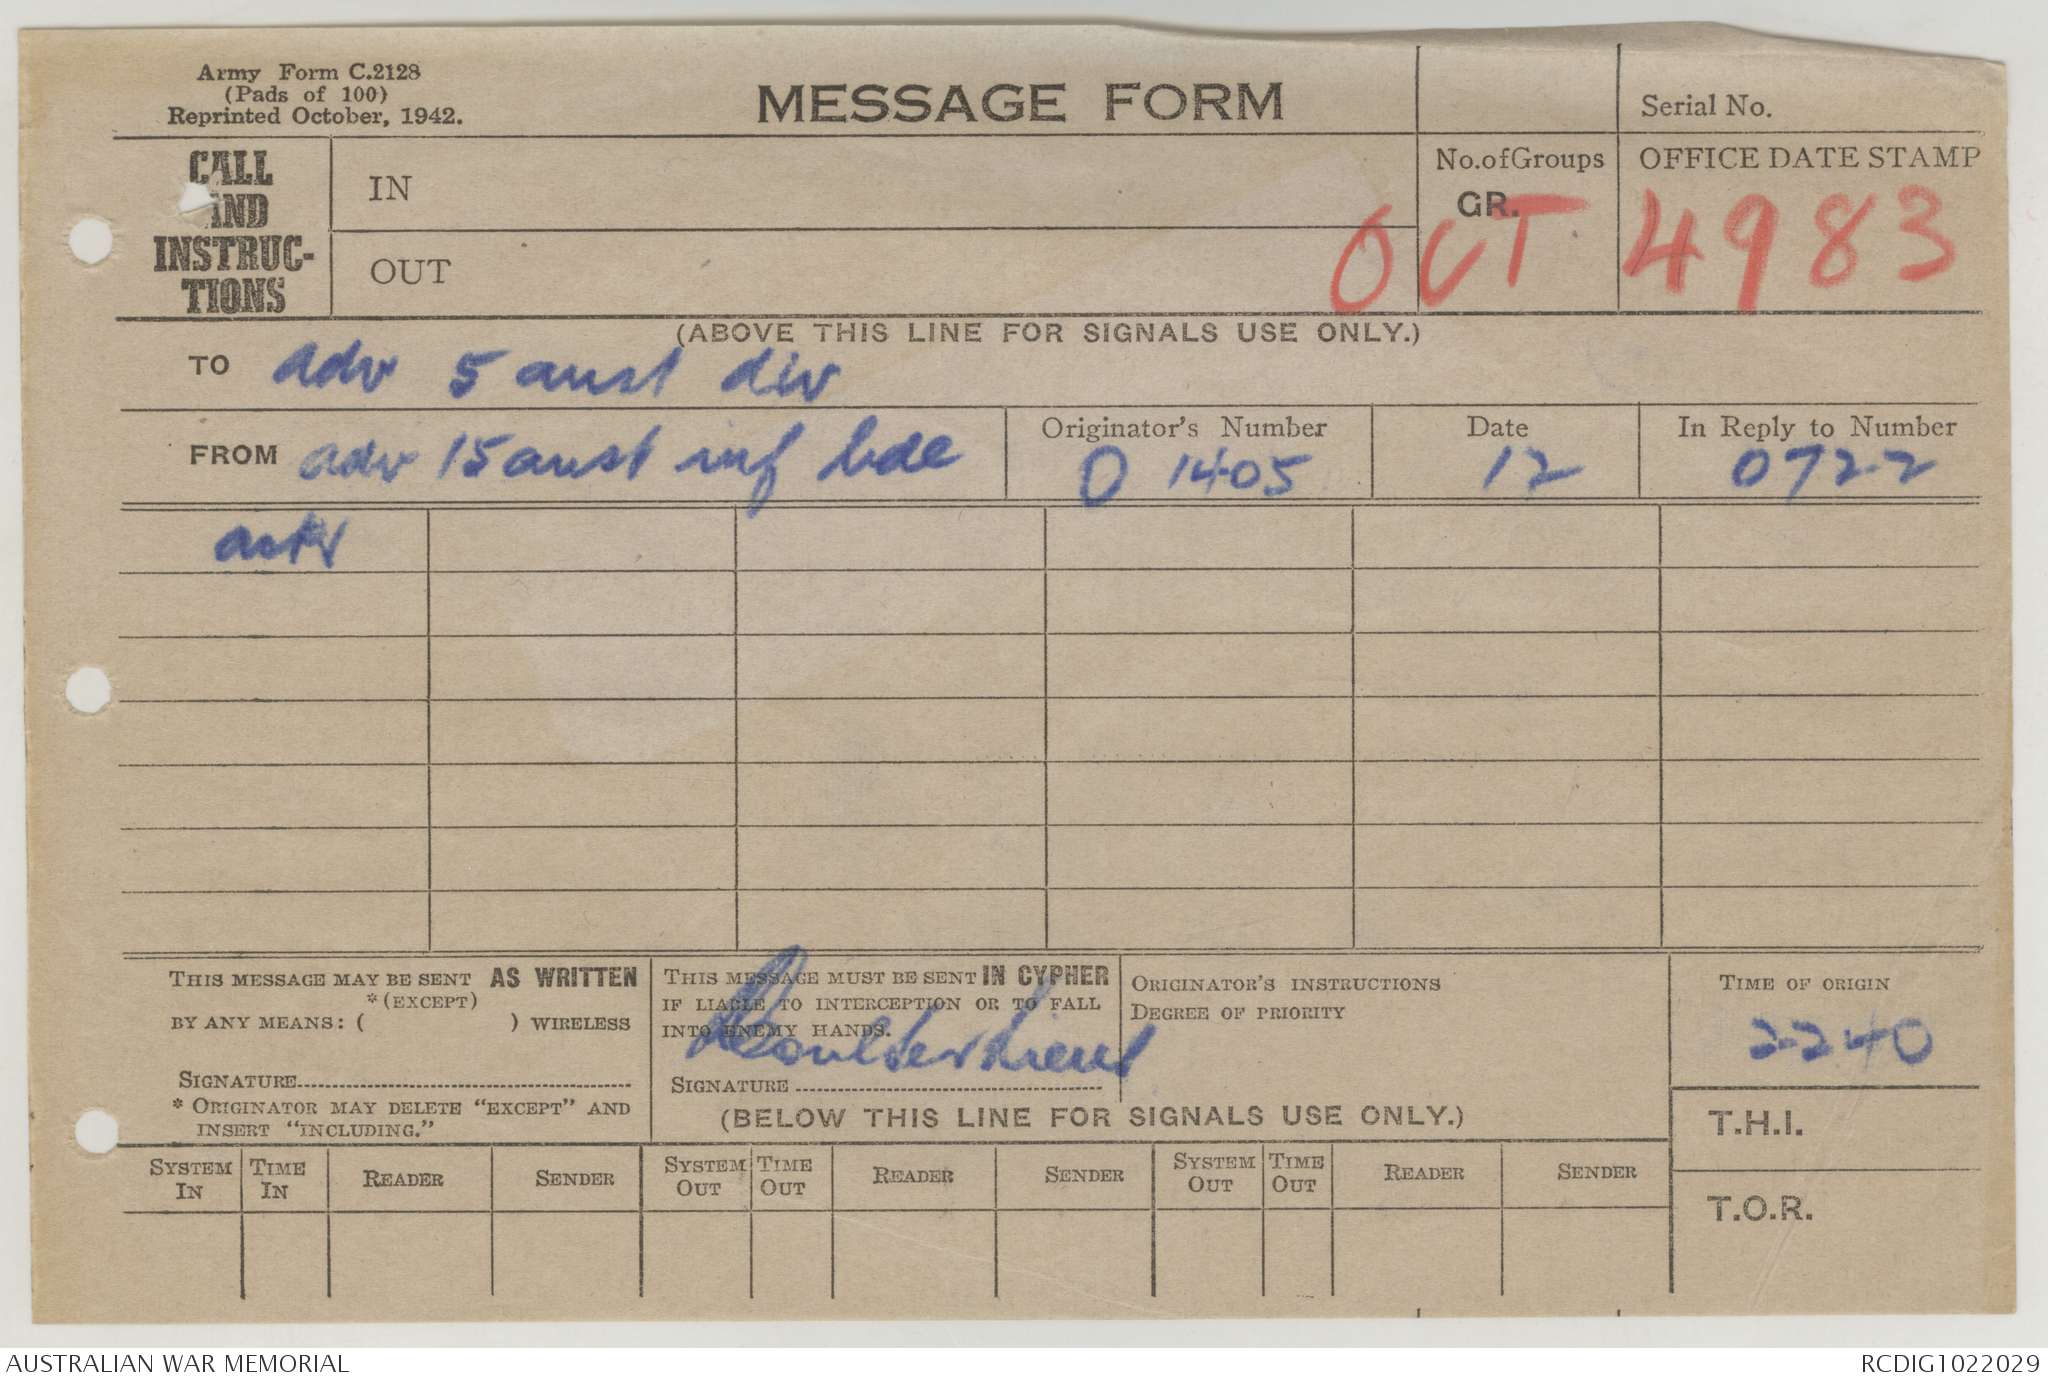 Army Form C.2128
(Pads of 100)
Reprinted October, 1942.
MESSAGE FORM
Serial No.
CALL
AND
INSTRUC-
TIONS
IN
OUT
No. of Groups
GR.
OFFICE DATE STAMP
OCT 4983
(ABOVE THIS LINE FOR SIGNALS USE ONLY.)
TO adv 5 aust div
FROM adv 15 aust inf bde
Originator's Number
O 1405
Date
12
In Reply to Number
0722
THIS MESSAGE MAY BE SENT AS WRITTEN
*(EXCEPT)
BY ANY MEANS: ( ) WIRELESS
SIGNATURE
* ORIGINATOR MAY DELETE "EXCEPT" AND
INSERT "INCLUDING."
THIS MESSAGE MUST BE SENT IN CYPHER
IF LIABLE TO INTERCEPTION OR TO FALL
INTO ENEMY HANDS.
Coulter Lieut
SIGNATURE
ORIGINATOR'S INSTRUCTIONS
DEGREE OF PRIORITY
TIME OF ORIGIN
2240
(BELOW THIS LINE FOR SIGNALS USE ONLY.)
T.H.I.
T.O.R.
SYSTEM IN
TIME IN
READER
SENDER
SYSTEM OUT
TIME OUT
READER
SENDER
SYSTEM OUT
TIME OUT
READER
SENDER
AUSTRALIAN WAR MEMORIAL
RCDIG1022029